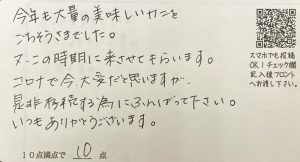 今年も大量の美味しいカニを
ごちそうさまでした。
又この時期に来させてもらいます。
コロナで今、大変だと思いますが、
是非存続する為にふんばって下さい。
いつもありがとうございます。
10点満点で 10 点
スマホでも投稿
OK！チェック欄
記入後フロント
へお渡し下さい。